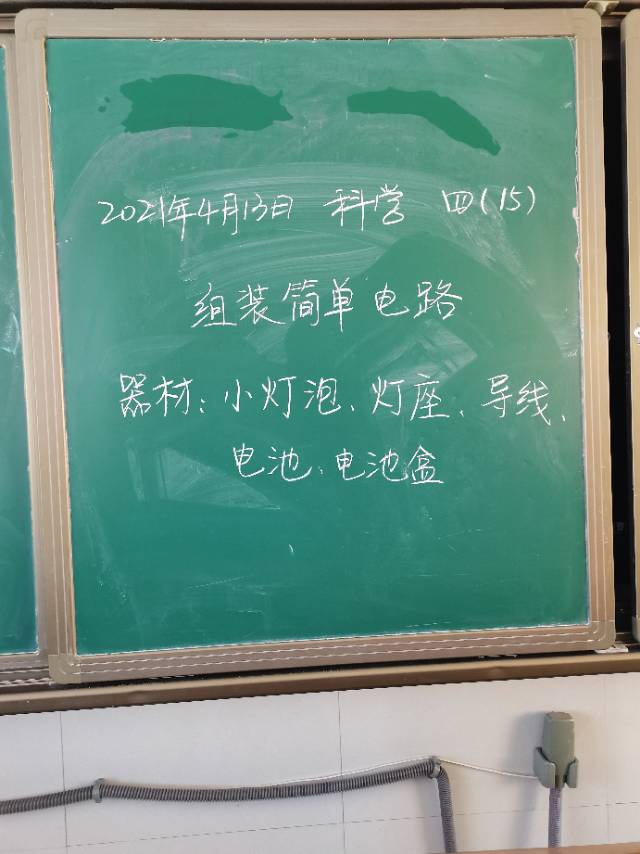 2021年4月13日 科学 四(15)
组装简单电路
器材:小灯泡、灯座、导线、
电池、电池盒